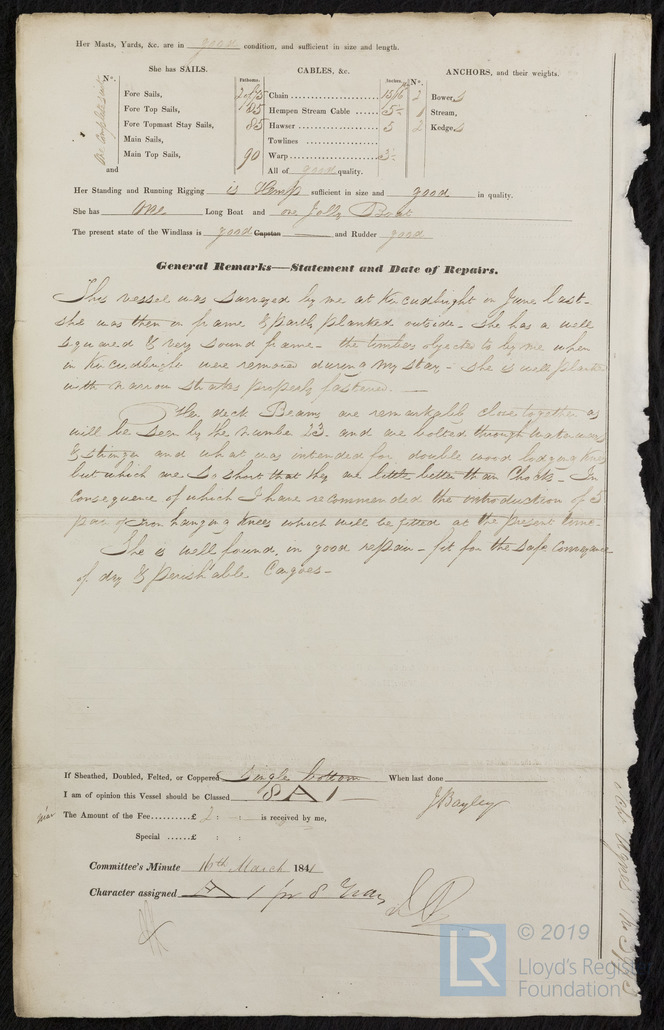 Her Masts, Yards, &c. are in good condition, and sufficient in size and length.
She has SAILS. CABLES, &c. ANCHORS, and their weights.
N°. Fathoms. Inches. N°.
Fore Sails, Chain 2 Bowers
Fore Top Sails, 105 Hempen Stream Cable 5 1 Stream,
Fore Topmast Stay Sails, 85 Hawser 5 2 Kedges
Main Sails, Towlines
Main Top Sails, 90 Warp 3
and All of good quality.
One complete suit
Her Standing and Running Rigging is Hemp sufficient in size and good in quality.
She has One Long Boat and one Jolly Boat
The present state of the Windlass is good Capstan and Rudder good
General Remarks—Statement and Date of Repairs.
This vessel was surveyed by me at Kircudbright in June last-
she was then in frame & partly planked outside- she has a well
squared & very sound frame- the timbers objected to by me when
in Kircudbright were removed during my stay- she is well planked
with narrow strakes properly fastened.
Her deck Beams are remarkably close together as
will be seen by the number 23. and are bolted through waterways
& stringer and what was intended for double wood lodging knees
but which are so short that they are little better than Chocks- In
consequence of which I have recommended the introduction of 3
pair of iron hanging knees which will be fitted at the present time-
She is well found, in good repair- fit for the safe conveyance
of dry & perishable Cargoes-
If Sheathed, Doubled, Felted, or Coppered single bottom When last done
I am of opinion this Vessel should be Classed 8 A 1
The Amount of the Fee.........£ 2 : : is received by me, J Bayley
Special ......£ : :
Committee's Minute 16th March 1841
Character assigned A 1 for 8 Years
LR © 2019
Lloyd's Register
Foundation